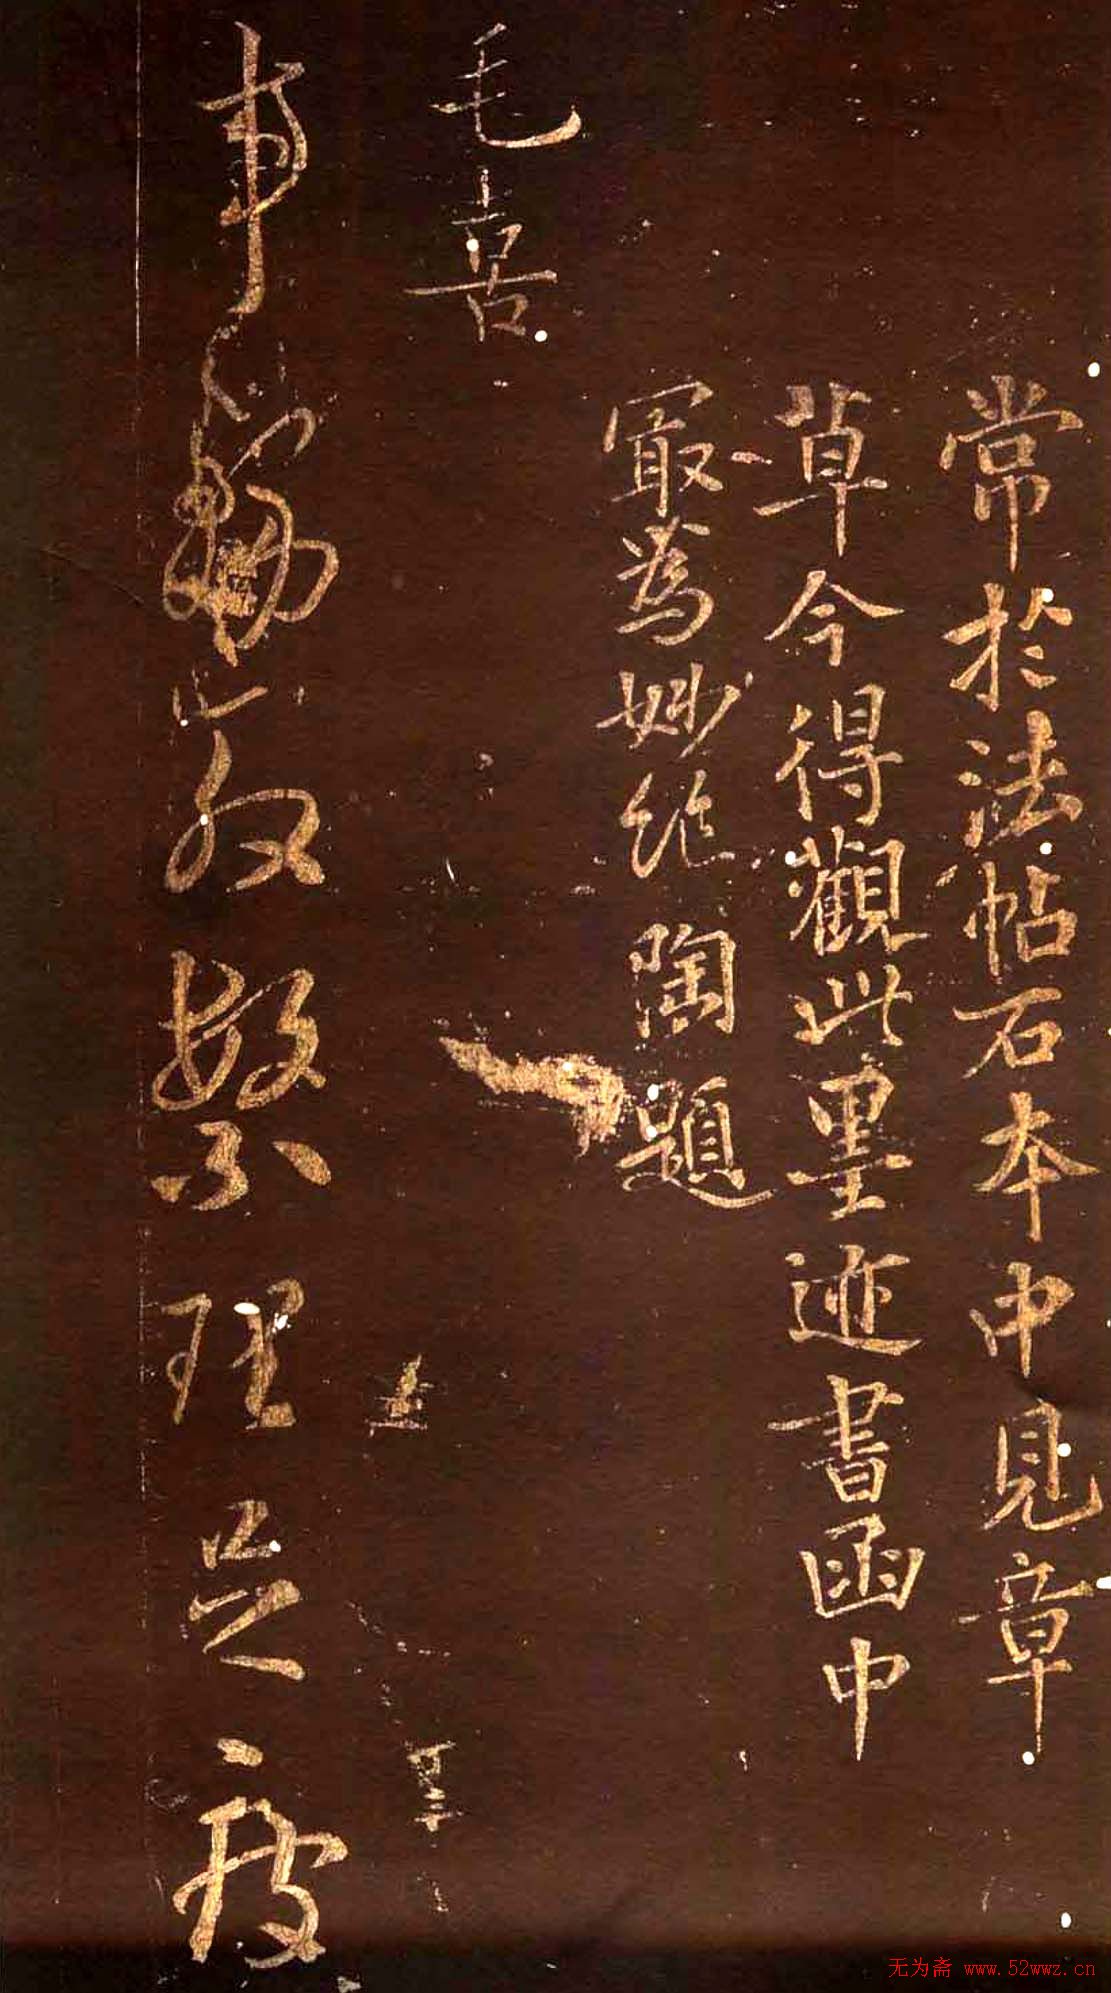 常於法帖石本中見章
草今得觀此墨迹書函中
冣為妙絕 陶題
毛喜
事 繁理 疲
无为斋 www.52wwz.cn